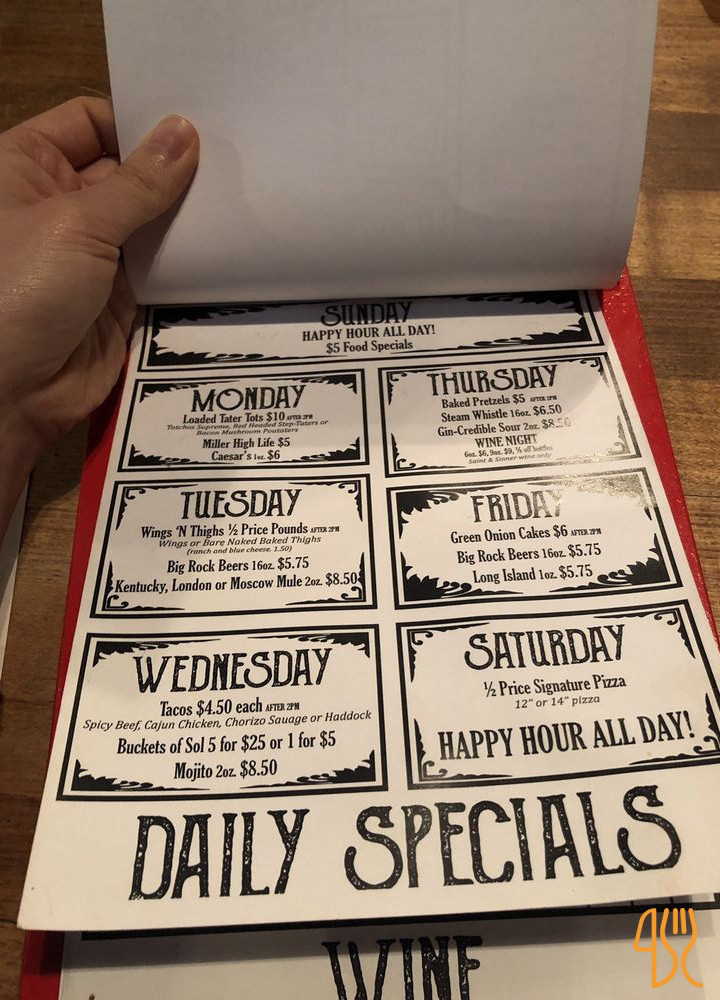 SUNDAY
HAPPY HOUR ALL DAY!
$5 Food Specials
MONDAY
Loaded Tater Tots $10 AFTER 2PM
Totchos Supreme, Red Headed Step-Taters or
Bacon Mushroom Poutaters
Miller High Life $5
Caesar's 1oz. $6
TUESDAY
Wings 'N Thighs ½ Price Pounds AFTER 2PM
Wings or Bare Naked Baked Thighs
(ranch and blue cheese. 1.50)
Big Rock Beers 16oz. $5.75
Kentucky, London or Moscow Mule 2oz. $8.50
WEDNESDAY
Tacos $4.50 each AFTER 2PM
Spicy Beef, Cajun Chicken, Chorizo Sauage or Haddock
Buckets of Sol 5 for $25 or 1 for $5
Mojito 2oz. $8.50
THURSDAY
Baked Pretzels $5 AFTER 2PM
Steam Whistle 16oz. $6.50
Gin-Credible Sour 2oz. $8.50
WINE NIGHT
6oz. $6, 9oz. $9, ½ off bottles
Saint & Sinner wine only
FRIDAY
Green Onion Cakes $6 AFTER 2PM
Big Rock Beers 16oz. $5.75
Long Island 1oz. $5.75
SATURDAY
½ Price Signature Pizza
12" or 14" pizza
HAPPY HOUR ALL DAY!
DAILY SPECIALS
WINE